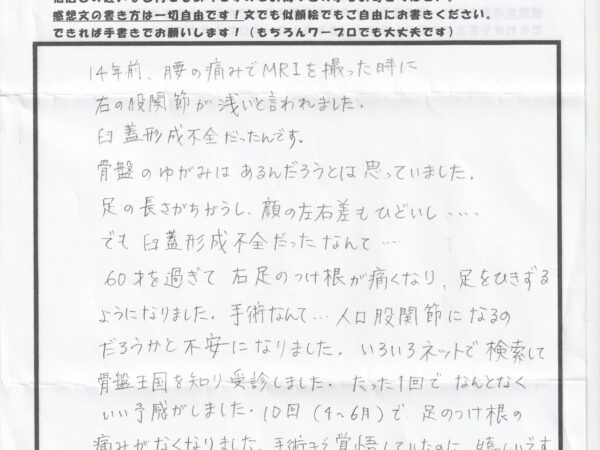 感想文の書き方は一切自由です！文でも似顔絵でもご自由にお書きください。
できれば手書きでお願いします！（もちろんワープロでも大丈夫です）
14年前、腰の痛みでMRIを撮った時に
右の股関節が浅いと言われました。
臼蓋形成不全だったんです。
骨盤のゆがみはあるんだろうとは思っていました。
足の長さがちがうし、顔の左右差もひどいし‥‥
でも臼蓋形成不全だったなんて…
60才を過ぎて右足のつけ根が痛くなり、足をひきずる
ようになりました。手術なんて…人口股関節になるの
だろうかと不安になりました。いろいろネットで検索して
骨盤王国を知り受診しました。たった1回でなんとなく
いい予感がしました。10回（4～6月）で、足のつけ根の
痛みがなくなりました。手術まで覚悟していたのに、嬉しいです